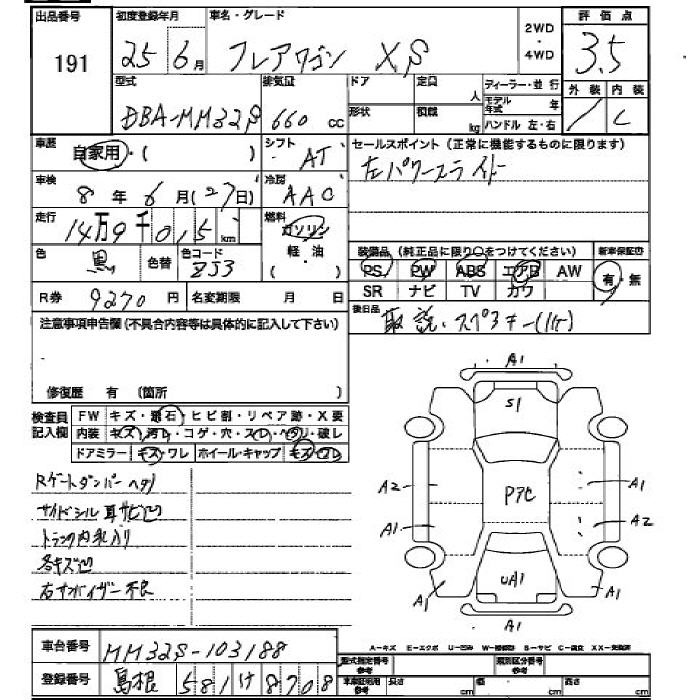 出品番号 初度登録年月 車名・グレード 2WD・4WD 評価点
191 25 6月 フレアワゴン XS 3.5
型式 排気量 ドア 定員 人 ディーラー・並行 外装 内装
DBA-MM32S 660 cc 形状 積載 kg モデル年式 年 ハンドル 左・右 C
車歴 自家用・( ) シフト AT セールスポイント(正常に機能するものに限ります)
左パワースライドー
車検 8年6月(27日) 冷房 AAC
走行 14万9千0,5 km 燃料 ガソリン 軽・油 ( )
色 黒 色替 色コード ZJ3
装備品(純正品に限り○をつけてください) 新車保証書
PS PW ABS エアB AW 有・無
SR ナビ TV カワ
R券 9270円 名変期限 月 日
後日品 取説・スペアキー(1ケ)
注意事項申告欄(不具合内容等は具体的に記入して下さい)
修復歴 有 (箇所 )
検査員記入欄 FW キズ・飛石・ヒビ割・リペア跡・X要
内装 キズ・汚レ・コゲ・穴・スレ・ヘタリ・破レ
ドアミラー キズ・ワレ ホイール・キャップ キズ・ワレ
Rゲートダンパーヘタリ
サイドシル耳サビ凹
トランク内
各キズ凹
右サンバイザー不良
A1
S1
A2 P7C A1
A1 A2
UA1
A1 A1
A1
A-キズ E-エクボ U-凹み W-補修跡 S-サビ C-腐食 XX-交換済
車台番号 MM32S-103188
型式指定番号 参考 類別区分番号 参考
登録番号 島根 581 け 8708
車庫証明用 参考 長さ cm 幅 cm 高さ cm